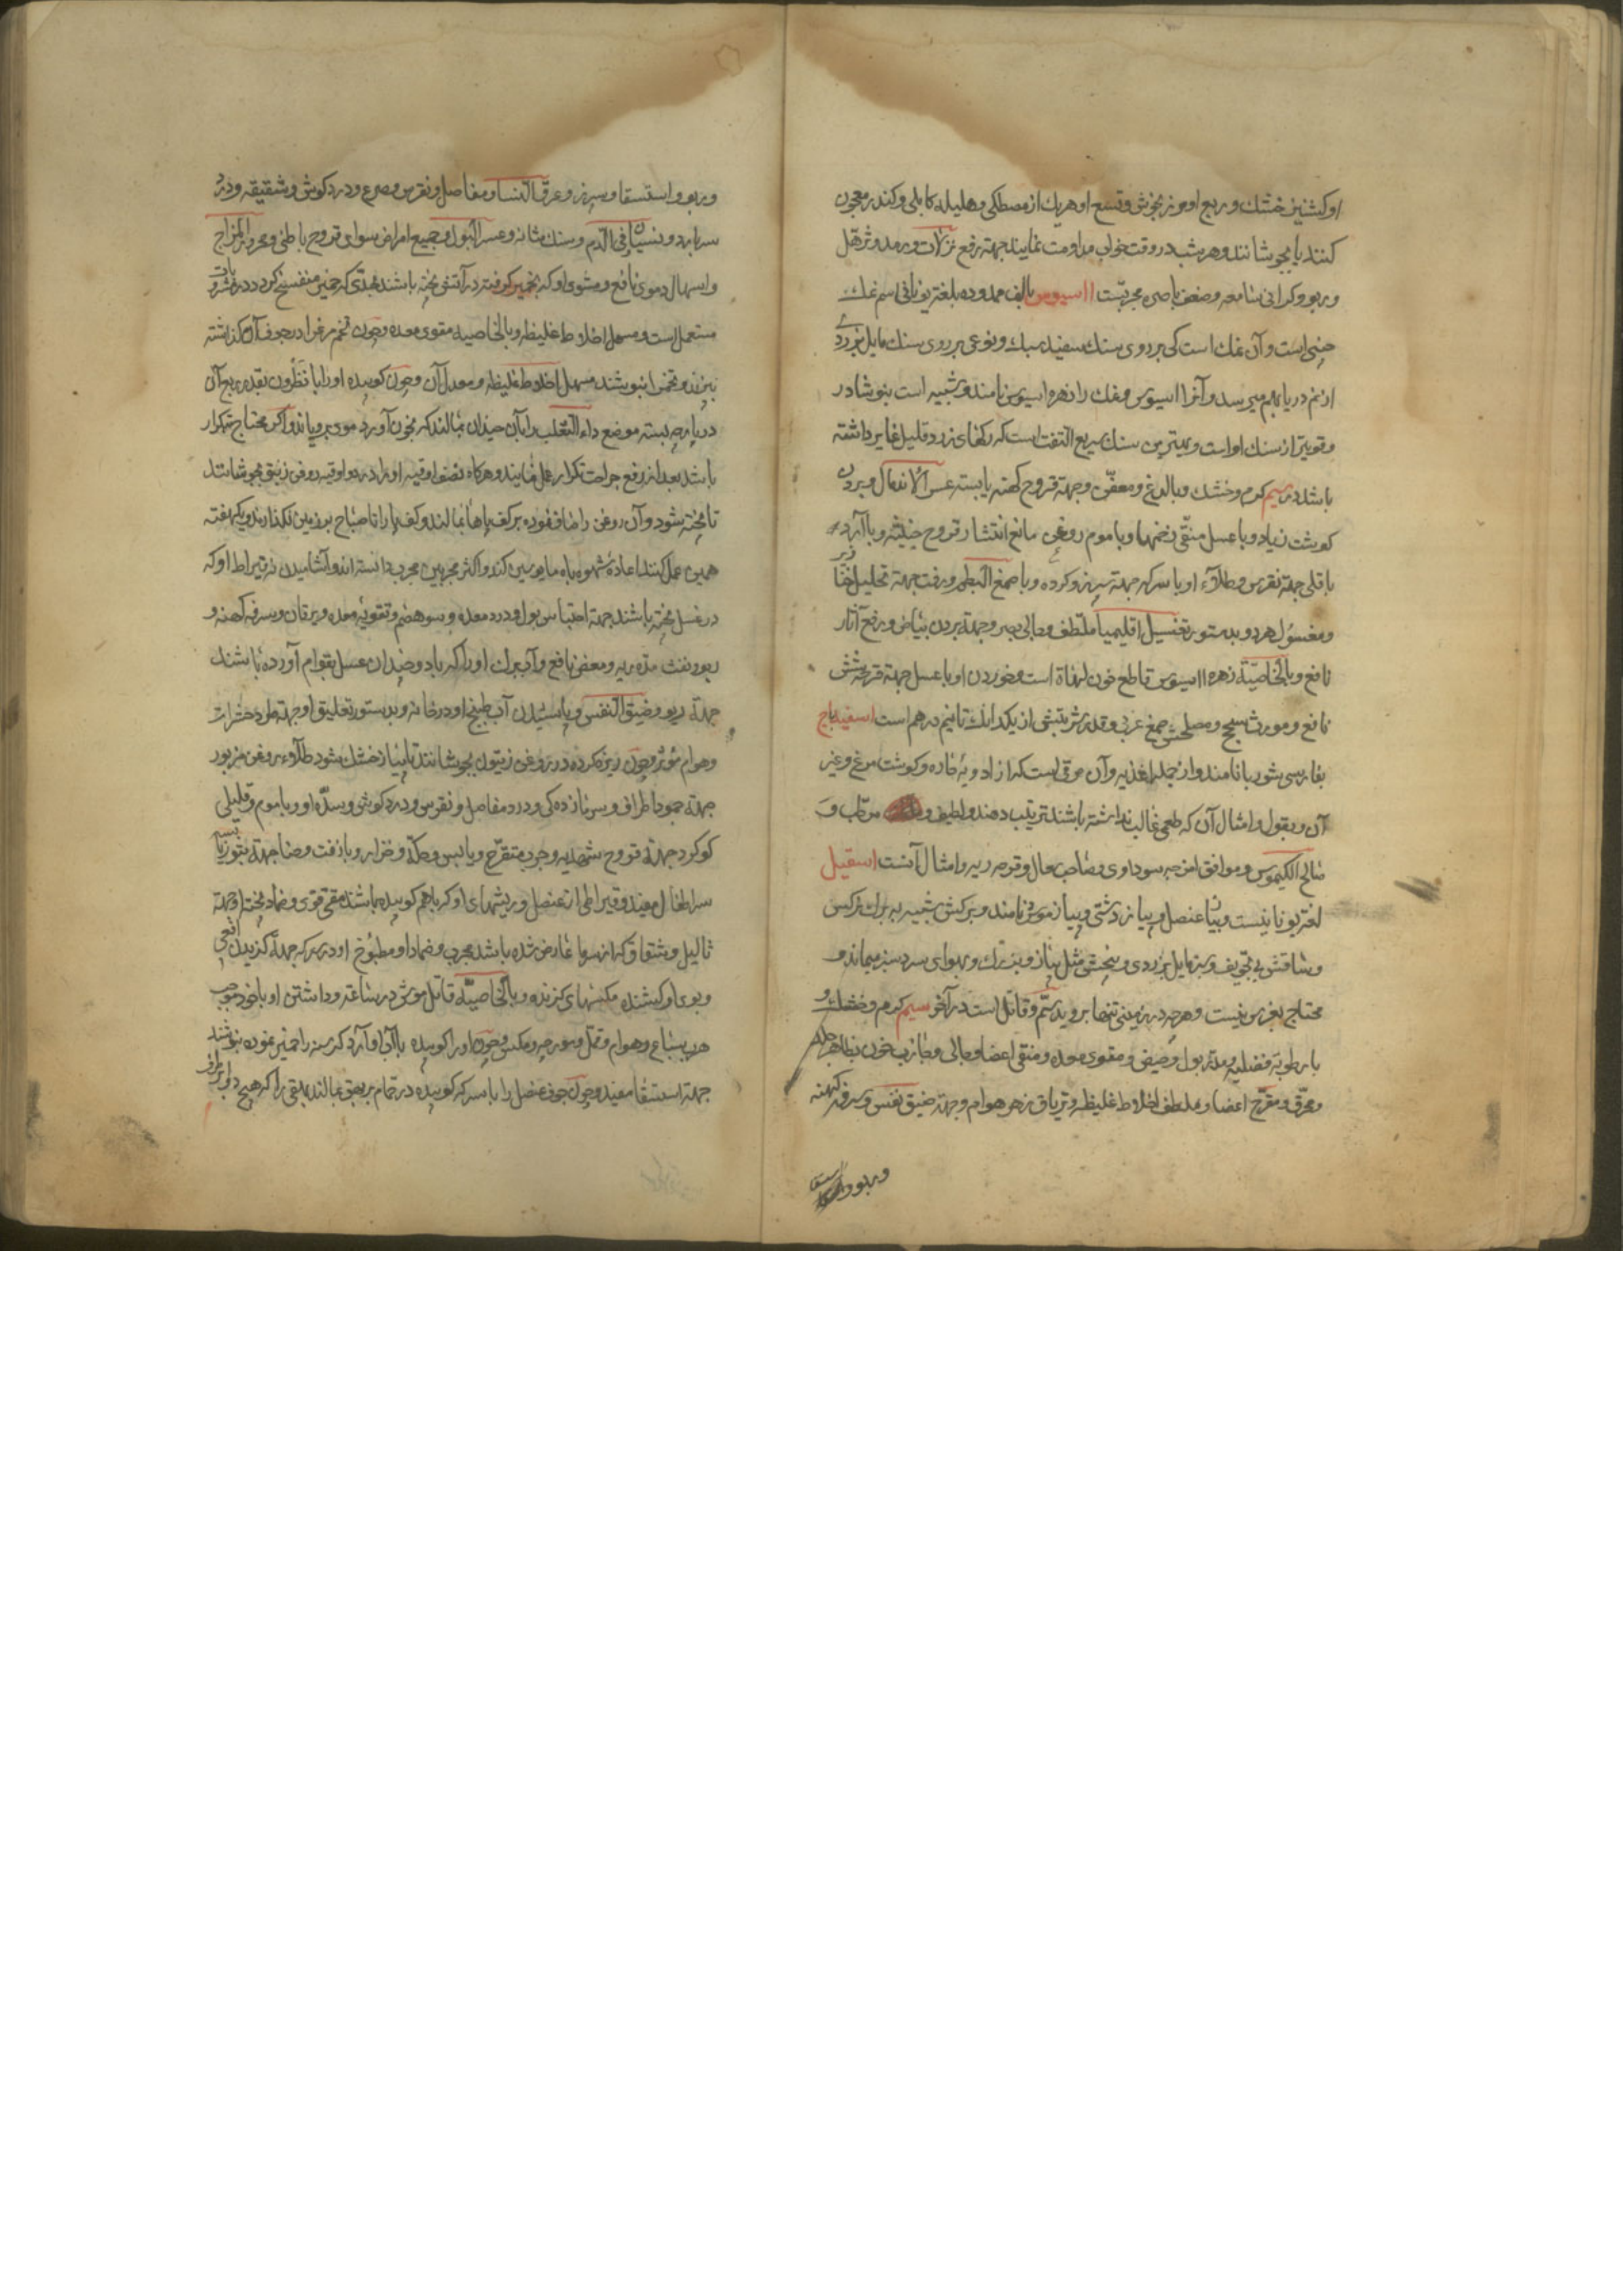 او کشنیز خشك و ربع او مویز بجوش و تسع او هر یك از مصطکی و هلیله کابلی و کندر معجون
کنند یا بجوشانند و هر شب در وقت خواب مداومت نمایند جهته رفع نزلات و رمد و ترهل
و ربو و کرانی سامعه و ضعف باصره مجربست ااسیوس بالف ممدوده بلغة یونانی اسم نمك
چینی است و آن نمك است که بر روی سنك سفید سبك و نوعی بر روی سنك مایل بزردی
از نم دریا بهم میرسد و آنرا ااسیوس و نمك را زهره اسیوس نامند و شبیه است بنوشادر
و قویتر از سنك او است و بهترین سنك سریع التفت است که رکهای زرد قلیل غایر داشته
باشد در سیم کرم و خشك و بالدغ و معفن و جهته قروح کهنه یا بسته عسر الاندمال و بردن
کوشت زیاد و با عسل منقی زخمها و با موم روغن مانع انتشار قروح خبیثه و با آرد
باقلی جهته نقرس و طلاء او با سرکه جهته سپرز و کرده و با صمغ البطم و زفت جهته تحلیل خنازیر
و مغسول هر دو بدستور تغسیل اقلیمیا ملطف و جالی بصر و جهته بردن بیاض و رفع آثار
نافع و بالخاصیة زهره ااسیوس قاطع خون لهاة است و خوردن او با عسل جهته قرحه شش
نافع و مورث سحج و مصلحش صمغ عربی و قدر شربتش از یکدانك تا نیم درهم است اسفیدباج
بفارسی شوربا نامند و از جمله اغذیه و آن مرقی است که از ادویهٔ حاره و کوشت مرغ و غیر
آن و بقول و امثال آن که طعمی غالب نداشته باشند ترتیب دهند و لطیف و مرطب و
صالح الکیموس و موافق امزجه سوداوی و صاحب سعال و قرحه ریه و امثال آنست اسقیل
لغة یونانیست و پیاز عنصل و پیاز دشتی و پیاز موش نامند و برکش شبیه به برك نرکس
و ساقش بی تجویف و سبز مایل بزردی و بیخش مثل پیاز و بزرك و بهوای سرد سبز میماند و
محتاج بغرس نیست و هر چه در زمینی تنها بروید سم و قاتل است در آخر سیم کرم و خشك و
با رطوبة فضلیه و مدر بول و حیض و مقوی معده و منقی اعضا و جالی و جاذب خون بظاهر جلد
و محرق و مقرح اعضا و ملطف اخلاط غلیظه و تریاق زهر هوام و جهته ضیق نفس و سرفه کهنه
و ربو و استسقا
و ربو و استسقا و سپرز و عرق النسا و مفاصل و نقرس و صرع و درد کوش و شقیقه و درد
سر بارد و نسیان و قی الدم و سنك مثانه و عسر البول و جمیع امراض سوای قروح باطنی و محرور المزاج
و اسهال دموی نافع و مشوی او که بخمیر کرفته در آتش پخته باشند بحدی که خمیر متفسخ کردد در مشروبات
مستعمل است و مسهل اخلاط غلیظه و بالخاصیه مقوی معده و چون تخم مرغ را در جوف آن کذاشته
بپزند و تخم را بنوشند مسهل اخلاط غلیظه و معدل آن و چون کوبیده او را با نطرون بقدر ربع آن
در پارچه بسته موضع داء الثعلب را بآن چندان بمالند که بخون آورد موی برویاند و اکر محتاج بتکرار
باشد بعد از رفع جراحت تکرار عمل نمایند و هرکاه نصف اوقیه او را در دو اوقیه روغن زنبق بجوشانند
تا پخته شود و آن روغن را صاف نموده بر کف پاها بمالند و کف پا را تا صباح بر زمین نکذارند و یکهفته
همین عمل کنند اعادهٔ شهوه باه مایوسین کند و اکثر مجربین مجرب دانسته اند و آشامیدن نه قیراط او که
در عسل پخته باشند جهته احتباس بول و درد معده و سوء هضم و تقویهٔ معده و یرقان و سرفه کهنه و
ربو و نفث مده ریه و مغص نافع و آب برك او را که با دو چندان عسل بقوام آورده باشند
جهتة ربو و ضیق النفس و پاشیدن آب طبیخ او در خانه و بدستور تعلیق او جهته طرد حشرات
و هوام مؤثر و چون ریزه کرده در روغن زیتون بجوشانند تا پیاز خشك شود طلاء روغن مزبور
جهتة جمود اطراف و سرمازده کی و درد مفاصل و نقرس و درد کوش و سده او و با موم و قلیلی
کوکرد جهتة قروح شهدیه و جرب متقرح و یابس و حکه و حزاز و با زفت و حنا جهتة بثور یابسه
سر اطفال مفید و قیراطی از عنصل و ریشهای او که با هم کوبیده باشند مقی قوی و ضماد پخته او جهتة
ثالیل و شقاق که از سرما عارض شده باشد مجرب و ضماد او مطبوخ او در سرکه جهتة کزیدن افعی
و بوی او کشنده مکسهای کزنده و بالخاصیة قاتل موش در ساعته و داشتن او با خود موجب
هرب سباع و هوام و نمل و مورچه و مکس و چون او را کوبیده با آب او آرد کرسنه را خمیر نموده بنوشند
جهتة استسقا مفید و چون جوف عنصل را با سرکه کوبیده در حمام بر بهق بمالند بهقی را که هیچ دوا بر طرف